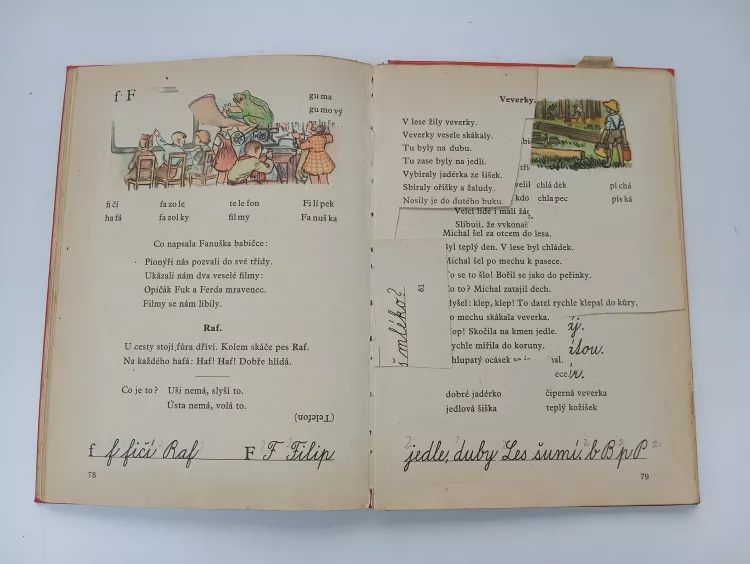 f F
gu ma
gu mo vý
fi čí fa zo le te le fon Fi lí pek
ha fá fa zol ky fil my Fa nuš ka
Co napsala Fanuška babičce:
Pionýři nás pozvali do své třídy.
Ukázali nám dva veselé filmy:
Opičák Fuk a Ferda mravenec.
Filmy se nám líbily.
Raf.
U cesty stojí fůra dříví. Kolem skáče pes Raf.
Na každého hafá: Haf! Haf! Dobře hlídá.
Co je to? Uši nemá, slyší to.
Ústa nemá, volá to.
(Telefon)
f f fičí Raf F F Filip
78
Veverky.
V lese žily veverky.
Veverky vesele skákaly.
Tu byly na dubu.
Tu zase byly na jedli.
Vybíraly jadérka ze šišek.
Sbíraly oříšky a žaludy.
Nosily je do dutého buku.
chlá dek pí chá
kdo chla pec pís ká
Velcí lidé i malí
Slibují, že
Michal šel za otcem do lesa.
Byl teplý den. V lese byl chládek.
Michal šel po mechu k pasece.
To se to šlo! Bořil se jako do peřinky.
Co to? Michal zatajil dech.
Slyšel: klep, klep! To datel rychle klepal do kůry.
Po mechu skákala veverka.
Hop! Skočila na kmen jedle.
Rychle mířila do koruny.
Chlupatý ocásek
81
mléko?
dobré jadérko čiperná veverka
jedlová šiška teplý kožíšek
jedle, duby Les šumí. b B p P
79